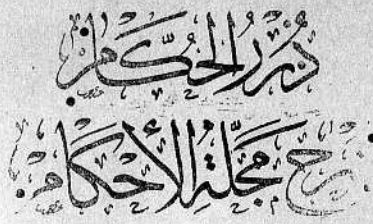 دُرَرُ الحُكَّامِ
شَرحُ مَجَلَّةِ الأَحْكَامِ